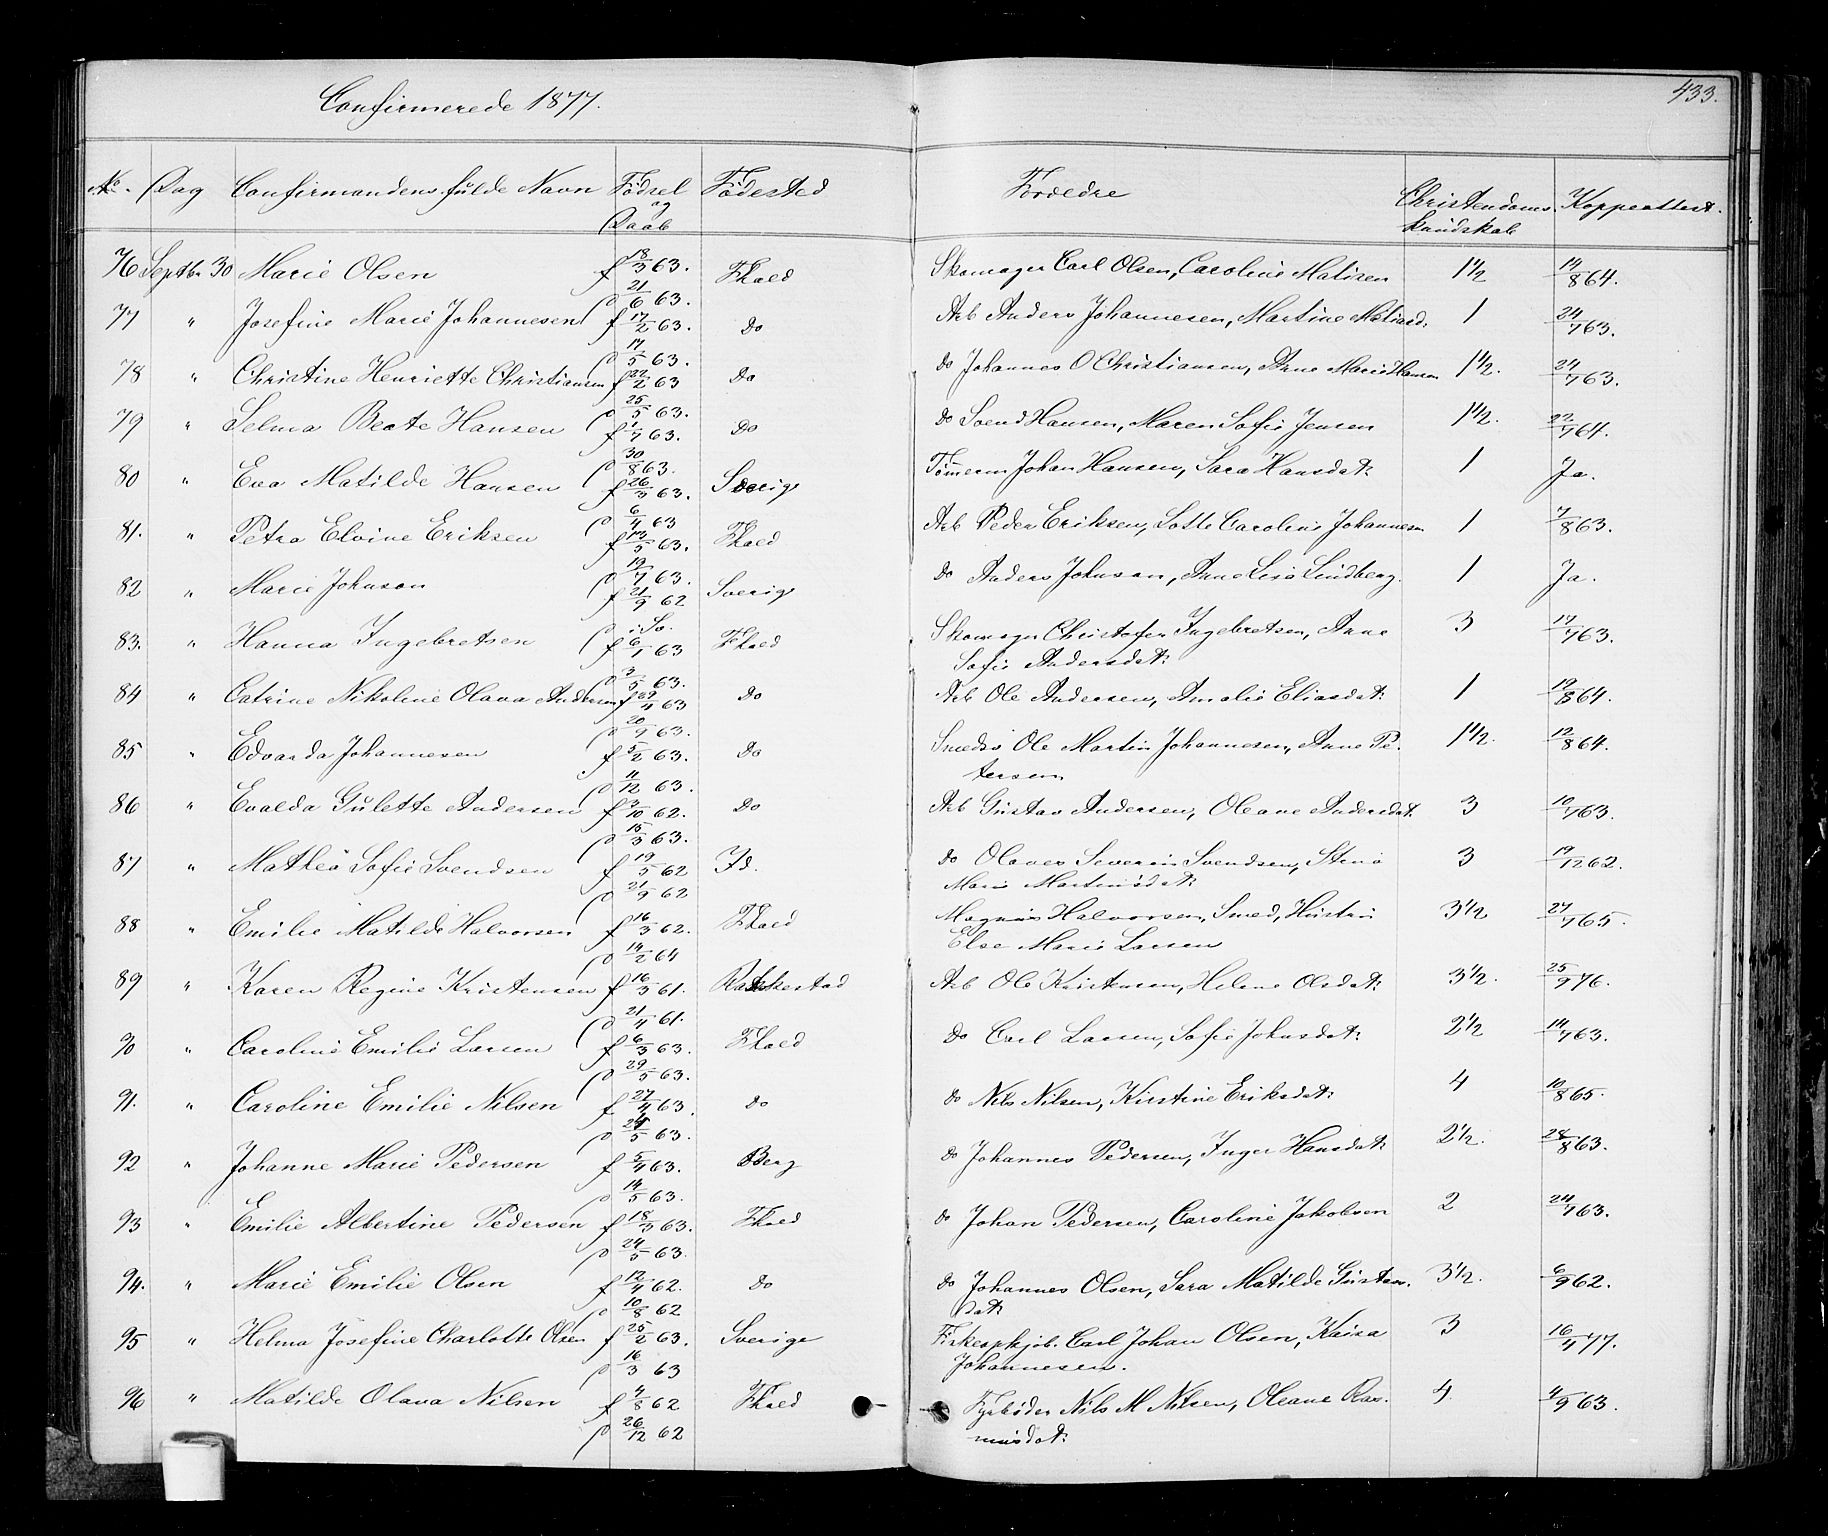 Confirmerede 1877.
433.
No. Dag Confirmandens fulde Navn Fødsel og Daab Fødested Forældre Christendoms kundskab Koppeattest.
76 Septbr 30 Marie Olsen f 18/3 63. Fhald Skomager Carl Olsen, Caroline Matisen 1 1/2 14/8 64.
D 21/6 63.
77 " Josefine Marie Johannesen f 17/2 63. Do Arb Anders Johannesen, Martine Matiasd. 1 24/7 63.
D 17/5 63.
78 " Christine Henriette Christiansen f 22/2 63 Do Do Johannes O Christiansen, Anne Marie Hansen 1 1/2. 24/7 63.
D 25/5 63.
79 " Selma Beate Hansen f 1/7 63. Do Do Svend Hansen, Maren Sofie Jensen 1 1/2. 22/7 64.
D 30/8 63.
80 " Eva Matilde Hansen f 26/3 63. Sverige Tømmerm Johan Hansen, Sara Hansdat: 1 Ja.
D 6/4 63
81. " Petra Elvine Eriksen f 13/5 63. Fhald Arb Peder Eriksen, Lotte Caroline Johannesen 1 7/8 63.
D 19/7 63.
82 " Marie Johnson f 21/9 62 Sverige Do Anders Johnson, Anne Lisa Lindberg. 1 Ja.
D i Sv.
83. " Hanna Ingebretsen f 6/1 63 Fhald Skomager Christofer Ingebretsen, Anne 3 17/7 63.
Sofie Andersdat:
D 3/5 63.
84 " Catrine Nikoline Olava Andersen f 29/4 63 Do Arb Ole Andersen, Amalie Eliasdat: 1 19/8 64.
D 20/9 63.
85 " Edvarda Johannesen f 5/2 63. Do Smeds Ole Martin Johannesen, Anne Pe- 1 1/2. 12/8 64.
tersen
D 11/12 63.
86 " Evalda Gulette Andersen f 3/10 62. Do Arb Gustav Andersen, Oleane Andersdat. 3 10/7 63.
D 15/3 63.
87 " Mathea Sofie Svendsen f 19/5 62 Id. Do Olaves Severin Svendsen, Stina 3 19/12 62.
Marie Martinsdat:
D 21/9 62
88 " Emilie Matilde Halvorsen f 16/3 62. Fhald Magnus Halvorsen, Smed, Hustru 3 1/2 27/7 65.
Else Marie Larsen
D 14/2 64
89 " Karen Regine Kristensen f 16/3 61. Rakkestad Arb Ole Kristensen, Helene Olsdat: 3 1/2. 25/9 76.
D 21/4 61.
90 " Caroline Emilie Larsen f 6/3 63. Fhald Do Carl Larsen, Sofie Johnsdat: 2 1/2 14/7 63.
D 29/5 63.
91. " Caroline Emilie Nilsen f 27/4 63. Do Do Nils Nilsen, Kirstine Eriksdat: 4 10/8 65.
D 24/5 63.
92 " Johanne Marie Pedersen f 5/4 63. Berg Do Johannes Pedersen, Inger Hansdat: 2 1/2. 28/8 63.
D 14/5 63.
93 " Emilie Albertine Pedersen f 18/3 63. Fhald Do Johan Pedersen, Caroline Jakobsen 2 24/7 63.
D 24/5 63.
94. " Marie Emilie Olsen f 12/4 62. Do Do Johannes Olsen, Sara Matilde Gustav- 3 1/2. 6/9 62.
dat:
D 10/8 62
95 " Helma Josefine Charlotte Olsen f 25/2 63. Sverige Firkeopkjøb. Carl Johan Olsen, Kaisa 3 16/4 77.
Johannesen.
D 16/3 63
96 " Matilde Olava Nilsen f 4/8 62 Fhald Fyrbøder Nils M Nilsen, Oleane Ras- 4. 4/9 63.
musdat:
D 26/12 62